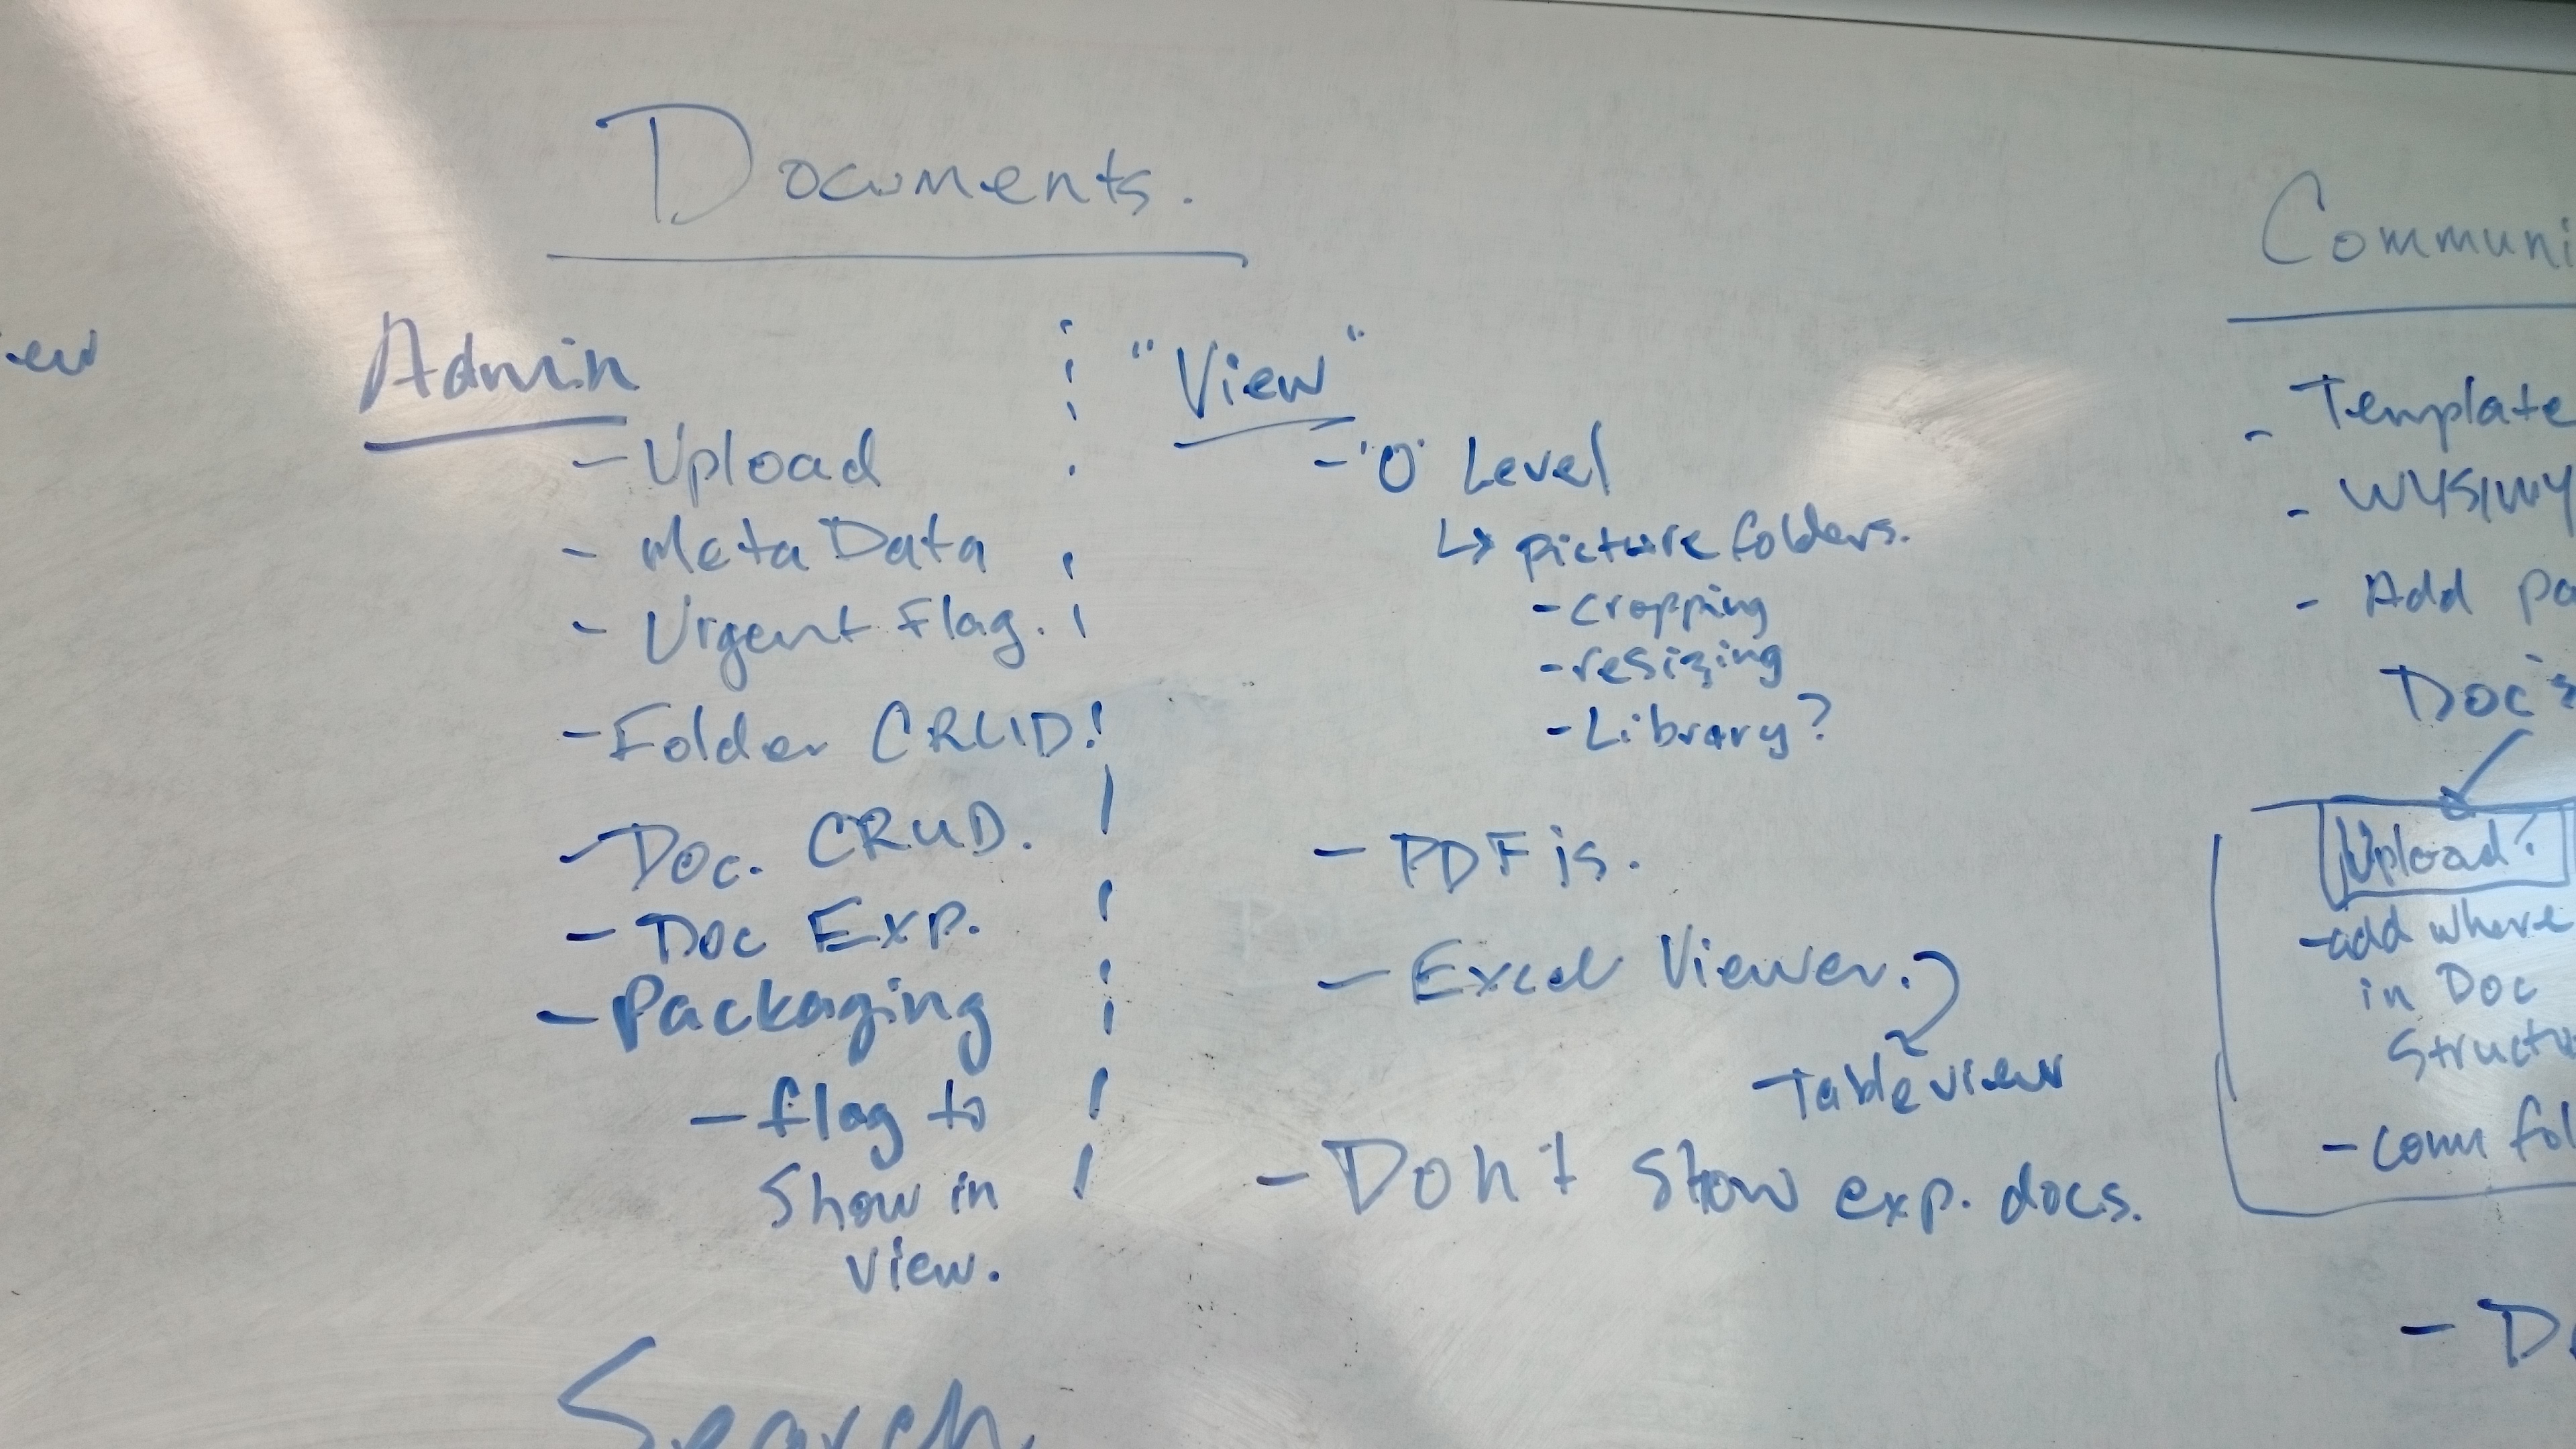 Documents.
Admin
- Upload
- Meta Data
- Urgent Flag.
- Folder CRUD!
- Doc. CRUD.
- Doc Exp.
- Packaging
- flag to
Show in
view.
Search
"View"
- "0" Level
↳ picture folders.
- cropping
- resizing
- Library?
- PDF js.
- Excel Viewer.
Table view
- Don't show exp. docs.
Communi
- Template
- WYSIWY
- Add pa
Doc's
Upload?
- add where
in Doc
Structu
- comm fol